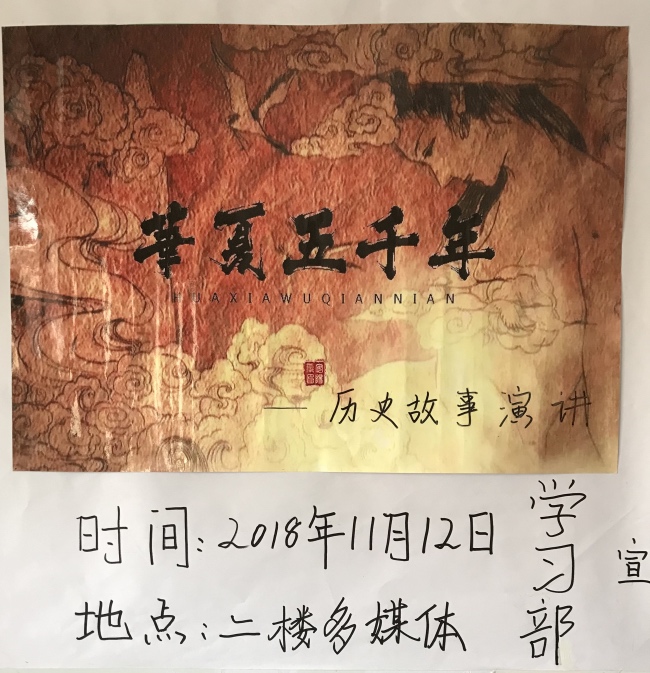 華夏五千年
HUAXIAWUQIANNIAN
——历史故事演讲
时间:2018年11月12日
地点:二楼多媒体
学习部
宣